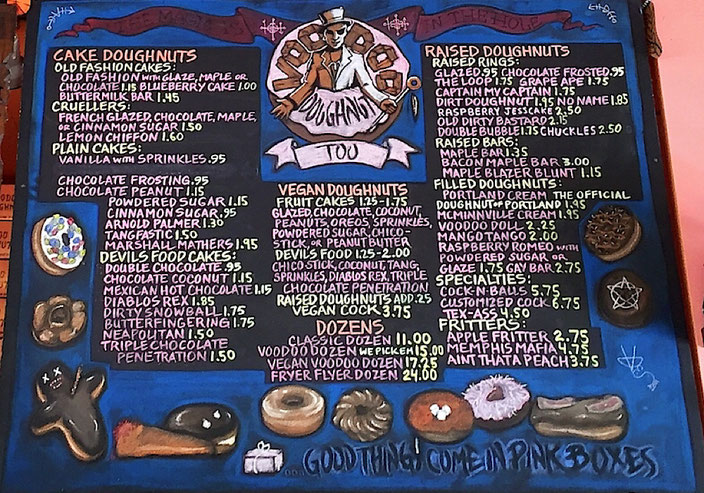 IN THE HOLE
VOODOO
DOUGHNUT
TOO
CAKE DOUGHNUTS
OLD FASHION CAKES:
OLD FASHION WITH GLAZE, MAPLE OR
CHOCOLATE 1.15 BLUEBERRY CAKE 1.00
BUTTERMILK BAR 1.45
CRUELLERS:
FRENCH GLAZED, CHOCOLATE, MAPLE,
OR CINNAMON SUGAR 1.50
LEMON CHIFFON 1.60
PLAIN CAKES:
VANILLA WITH SPRINKLES .95
CHOCOLATE FROSTING .95
CHOCOLATE PEANUT 1.15
POWDERED SUGAR 1.15
CINNAMON SUGAR .95
ARNOLD PALMER 1.30
TANGFASTIC 1.50
MARSHALL MATHERS 1.95
DEVILS FOOD CAKES:
DOUBLE CHOCOLATE .95
CHOCOLATE COCONUT 1.15
MEXICAN HOT CHOCOLATE 1.15
DIABLOS REX 1.85
DIRTY SNOWBALL 1.75
BUTTERFINGERING 1.75
NEAPOLITAN 1.50
TRIPLE CHOCOLATE
PENETRATION 1.50
VEGAN DOUGHNUTS
FRUIT CAKES 1.25-1.75
GLAZED, CHOCOLATE, COCONUT,
PEANUTS, OREOS, SPRINKLES,
POWDERED SUGAR, CHICO-
STICK, OR PEANUT BUTTER
DEVILS FOOD 1.25-2.00
CHICO STICK, COCONUT, TANG,
SPRINKLES, DIABLOS REX, TRIPLE
CHOCOLATE PENETRATION
RAISED DOUGHNUTS ADD .25
VEGAN COCK 3.75
DOZENS
CLASSIC DOZEN 11.00
VOODOO DOZEN WE PICK EM 15.00
VEGAN VOODOO DOZEN 17.25
FRYER FLYER DOZEN 24.00
RAISED DOUGHNUTS
RAISED RINGS:
GLAZED .95 CHOCOLATE FROSTED .95
THE LOOP 1.75 GRAPE APE 1.75
CAPTAIN MY CAPTAIN 1.75
DIRT DOUGHNUT 1.95 NO NAME 1.85
RASPBERRY JESSCAKE 2.50
OLD DIRTY BASTARD 2.15
DOUBLE BUBBLE 1.75 CHUCKLES 2.50
RAISED BARS:
MAPLE BAR 1.35
BACON MAPLE BAR 3.00
MAPLE BLAZER BLUNT 1.15
FILLED DOUGHNUTS:
PORTLAND CREAM THE OFFICIAL
DOUGHNUT OF PORTLAND 1.95
MCMINNVILLE CREAM 1.95
VOODOO DOLL 2.25
MANGO TANGO 2.00
RASPBERRY ROMEO WITH
POWDERED SUGAR OR
GLAZE 1.75 GAY BAR 2.75
SPECIALTIES:
COCK-N-BALLS 5.75
CUSTOMIZED COCK 6.75
TEX-ASS 4.50
FRITTERS:
APPLE FRITTER 2.75
MEMPHIS MAFIA 4.75
AINT THAT A PEACH 3.75
...GOOD THINGS COME IN PINK BOXES